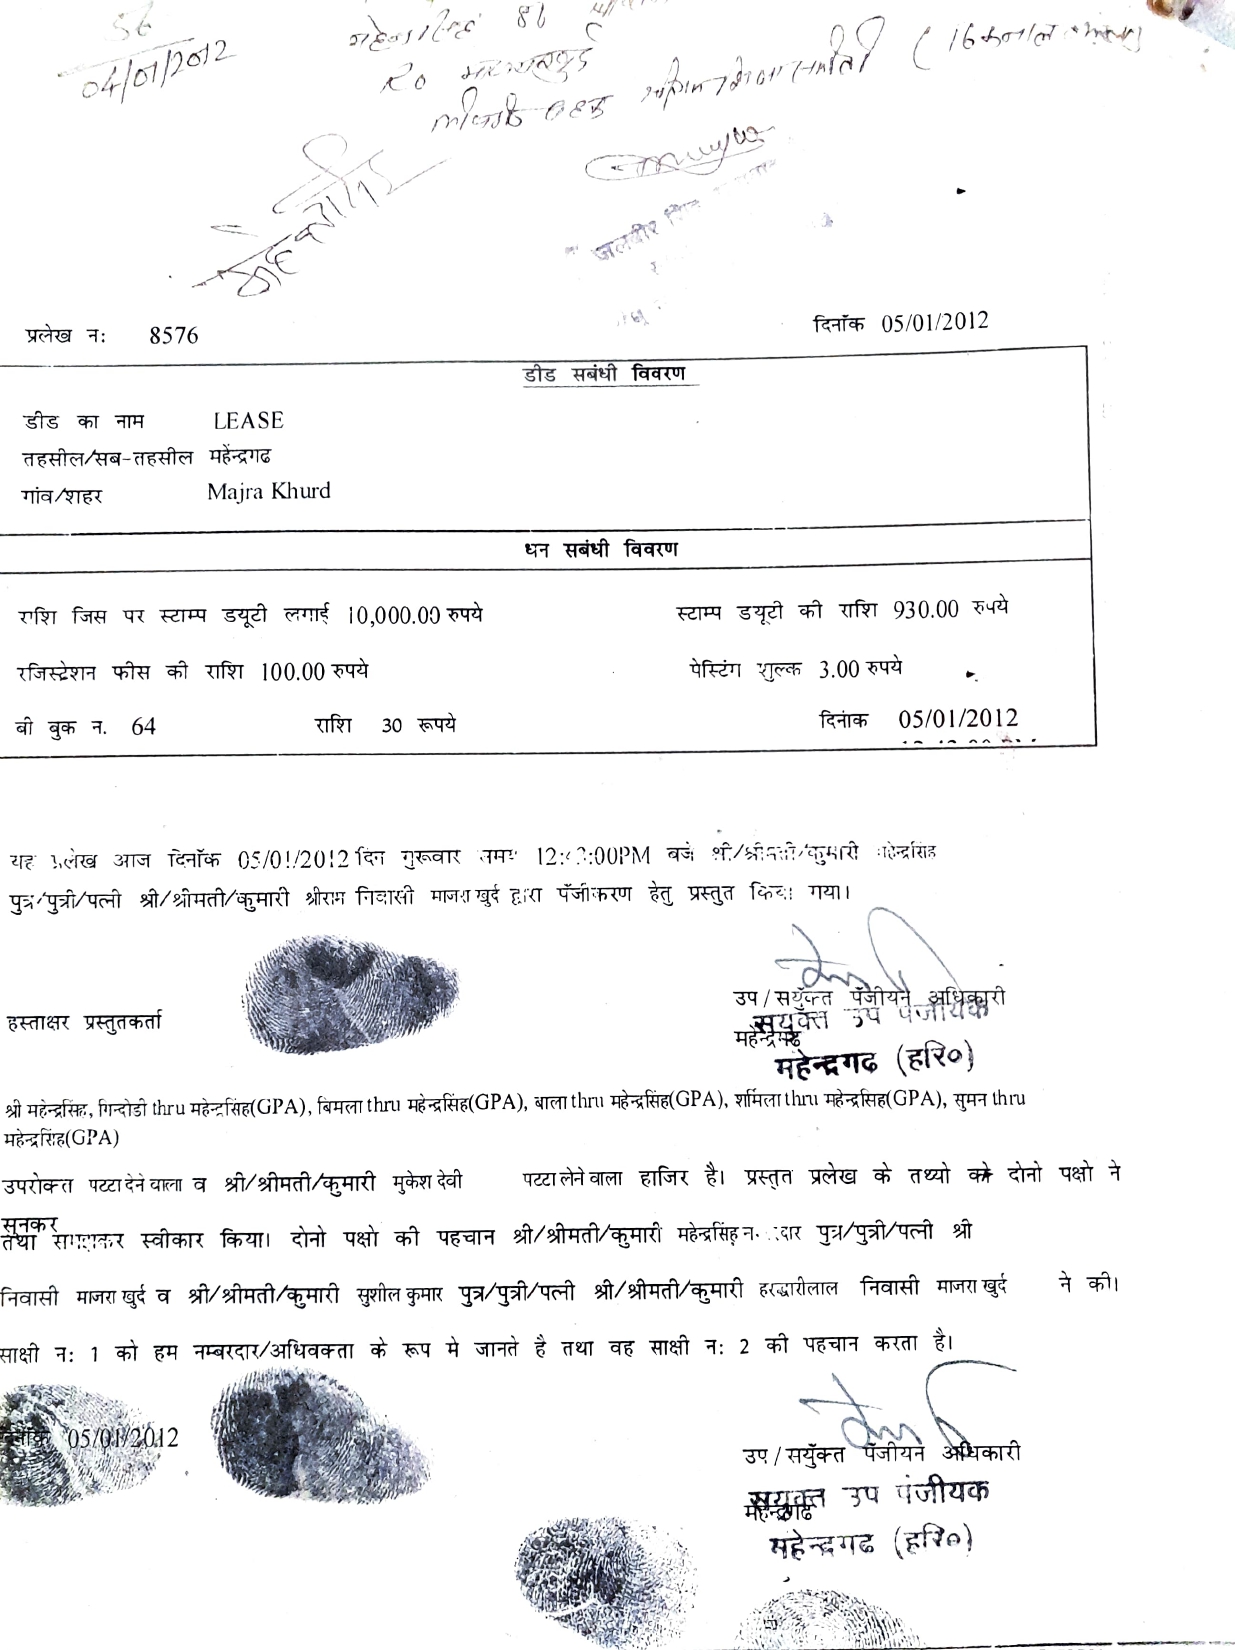 56
04/01/2012
R०
जलबीर सिंह
प्रलेख न: 8576 दिनॉंक 05/01/2012
डीड सबंधी विवरण
डीड का नाम LEASE
तहसील/सब-तहसील महेंन्द्रगढ
गांव/शहर Majra Khurd
धन सबंधी विवरण
राशि जिस पर स्टाम्प डयूटी लगाई 10,000.00 रुपये स्टाम्प डयूटी की राशि 930.00 रुपये
रजिस्ट्रेशन फीस की राशि 100.00 रुपये पेस्टिंग शुल्क 3.00 रुपये
बी बुक न. 64 राशि 30 रूपये दिनांक 05/01/2012
यह प्रलेख आज दिनॉंक 05/01/2012 दिन गुरूवार समय 12:43:00PM बजे श्री/श्रीमती/कुमारी महेन्द्रसिंह
पुत्र/पुत्री/पत्नी श्री/श्रीमती/कुमारी श्रीराम निवासी माजरा खुर्द द्वारा पॅंजीकरण हेतु प्रस्तुत किया गया।
उप / सयुॅंक्त पॅंजीयन अधिकारी
हस्ताक्षर प्रस्तुतकर्ता
सयुक्त उप पंजीयक
महेन्द्रगढ
महेन्द्रगढ (हरि०)
श्री महेन्द्रसिंह, गिन्दोडी thru महेन्द्रसिंह(GPA), बिमला thru महेन्द्रसिंह(GPA), बाला thru महेन्द्रसिंह(GPA), शर्मिला thru महेन्द्रसिंह(GPA), सुमन thru
महेन्द्रसिंह(GPA)
उपरोक्त पटटा देने वाला व श्री/श्रीमती/कुमारी मुकेश देवी पटटा लेने वाला हाजिर है। प्रस्तुत प्रलेख के तथ्यो को दोनो पक्षो ने
सुनकर
तथा समझकर स्वीकार किया। दोनो पक्षो की पहचान श्री/श्रीमती/कुमारी महेन्द्रसिंह पुत्र/पुत्री/पत्नी श्री
निवासी माजरा खुर्द व श्री/श्रीमती/कुमारी सुशील कुमार पुत्र/पुत्री/पत्नी श्री/श्रीमती/कुमारी हरद्वारीलाल निवासी माजरा खुर्द ने की।
साक्षी न: 1 को हम नम्बरदार/अधिवक्ता के रूप मे जानते है तथा वह साक्षी न: 2 की पहचान करता है।
दिनॉंक 05/01/2012
उप / सयुॅंक्त पॅंजीयन अधिकारी
सयुक्त उप पंजीयक
महेन्द्रगढ
महेन्द्रगढ (हरि०)